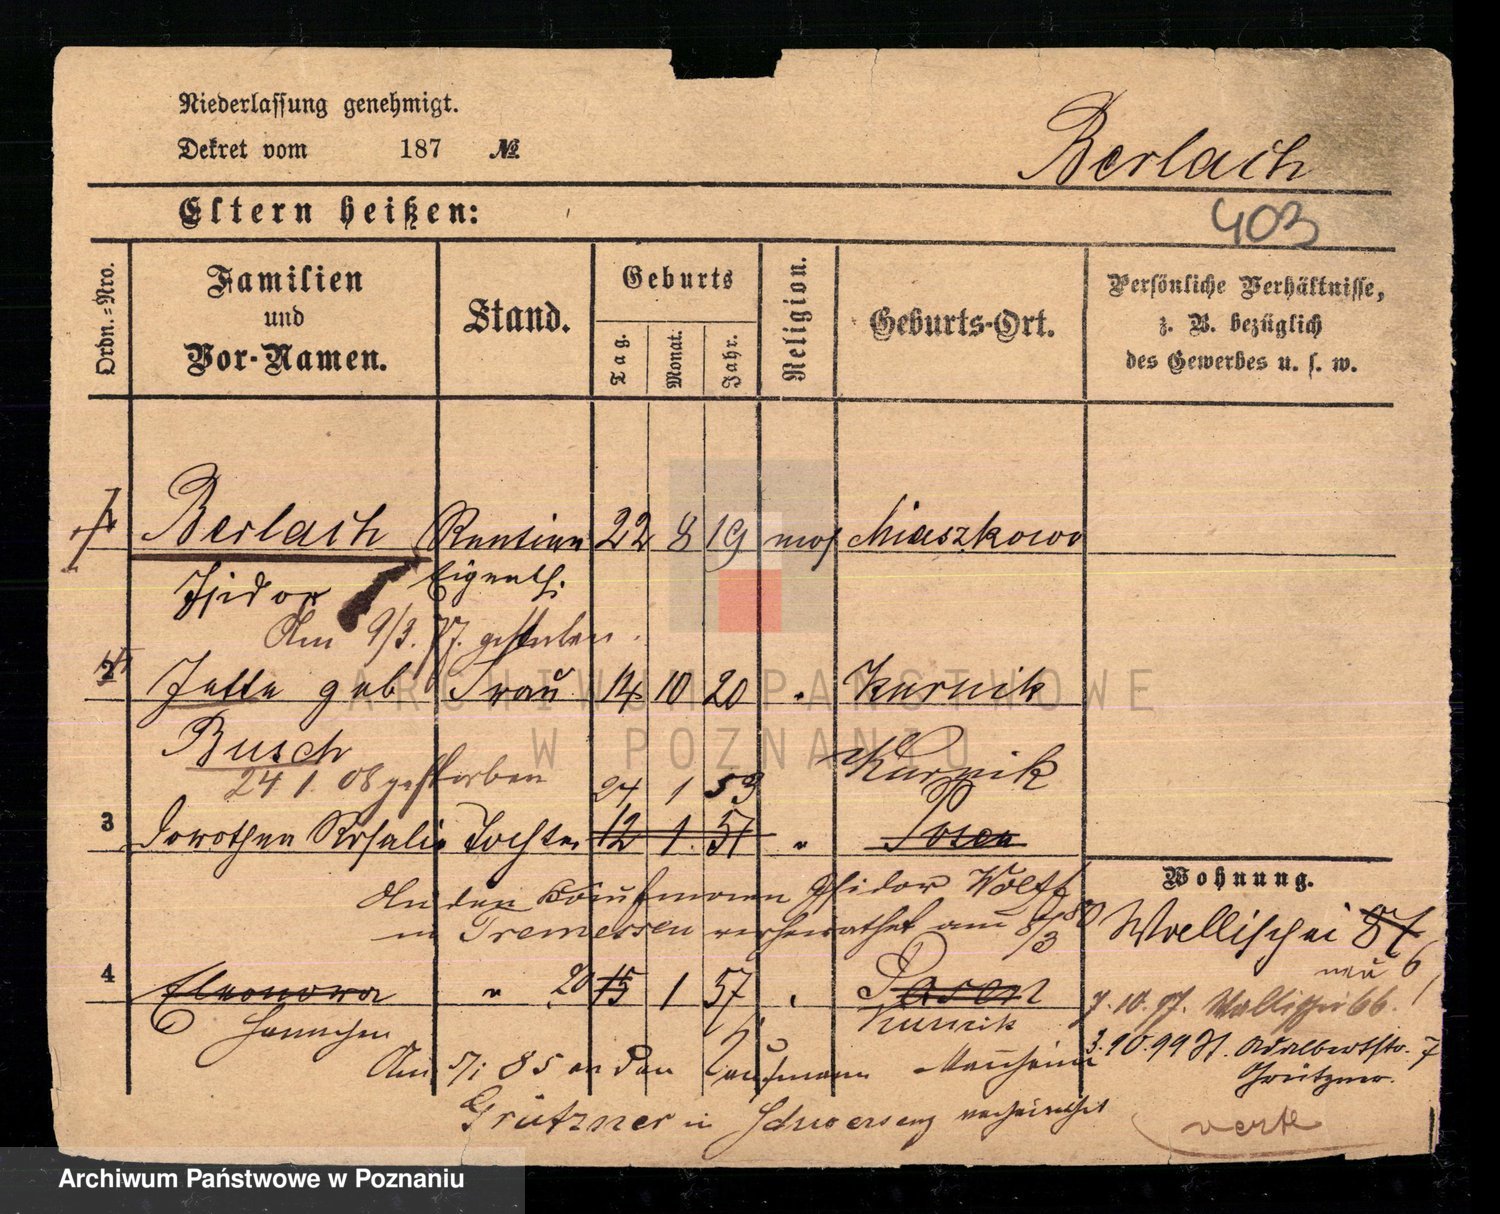 Niederlassung genehmigt.
Dekret vom 187 №
Berlach
Eltern heißen:
403
Ordn.-Nro.
Familien und Vor-Namen.
Stand.
Geburts
Tag. Monat. Jahr.
Religion.
Geburts-Ort.
Persönliche Verhältnisse,
z. B. bezüglich
des Gewerbes u. s. w.
1 Berlach Rentier 22 8 19 mos Miaszkowo
Isidor Eigenth.
Am 9/3. 77. gestorben.
2 Jette geb Frau 14 10 20 " Kurnik
Busch
24 1. 08 gestorben 24 1 53 Kurnik
3 Dorothea Rosalie Tochter 12 1. 51 " Posen
An den Kaufmann Isidor Wolff
in Tremessen verheirathet am 8/3 80
Wohnung.
Wallischei 87
neu 6
4 Eleonora " 20 15 1 57 " Posen
Hannchen Kurnik
7. 10. 97. Wallischei 66.
Am 5/1 85 an den Kaufmann Mannheim
3. 10. 99 St. Adalbertstr. 7
Grützner.
Grützner in Schwersenz verheirathet
verte
ARCHIWUM PAŃSTWOWE
W POZNANIU
Archiwum Państwowe w Poznaniu